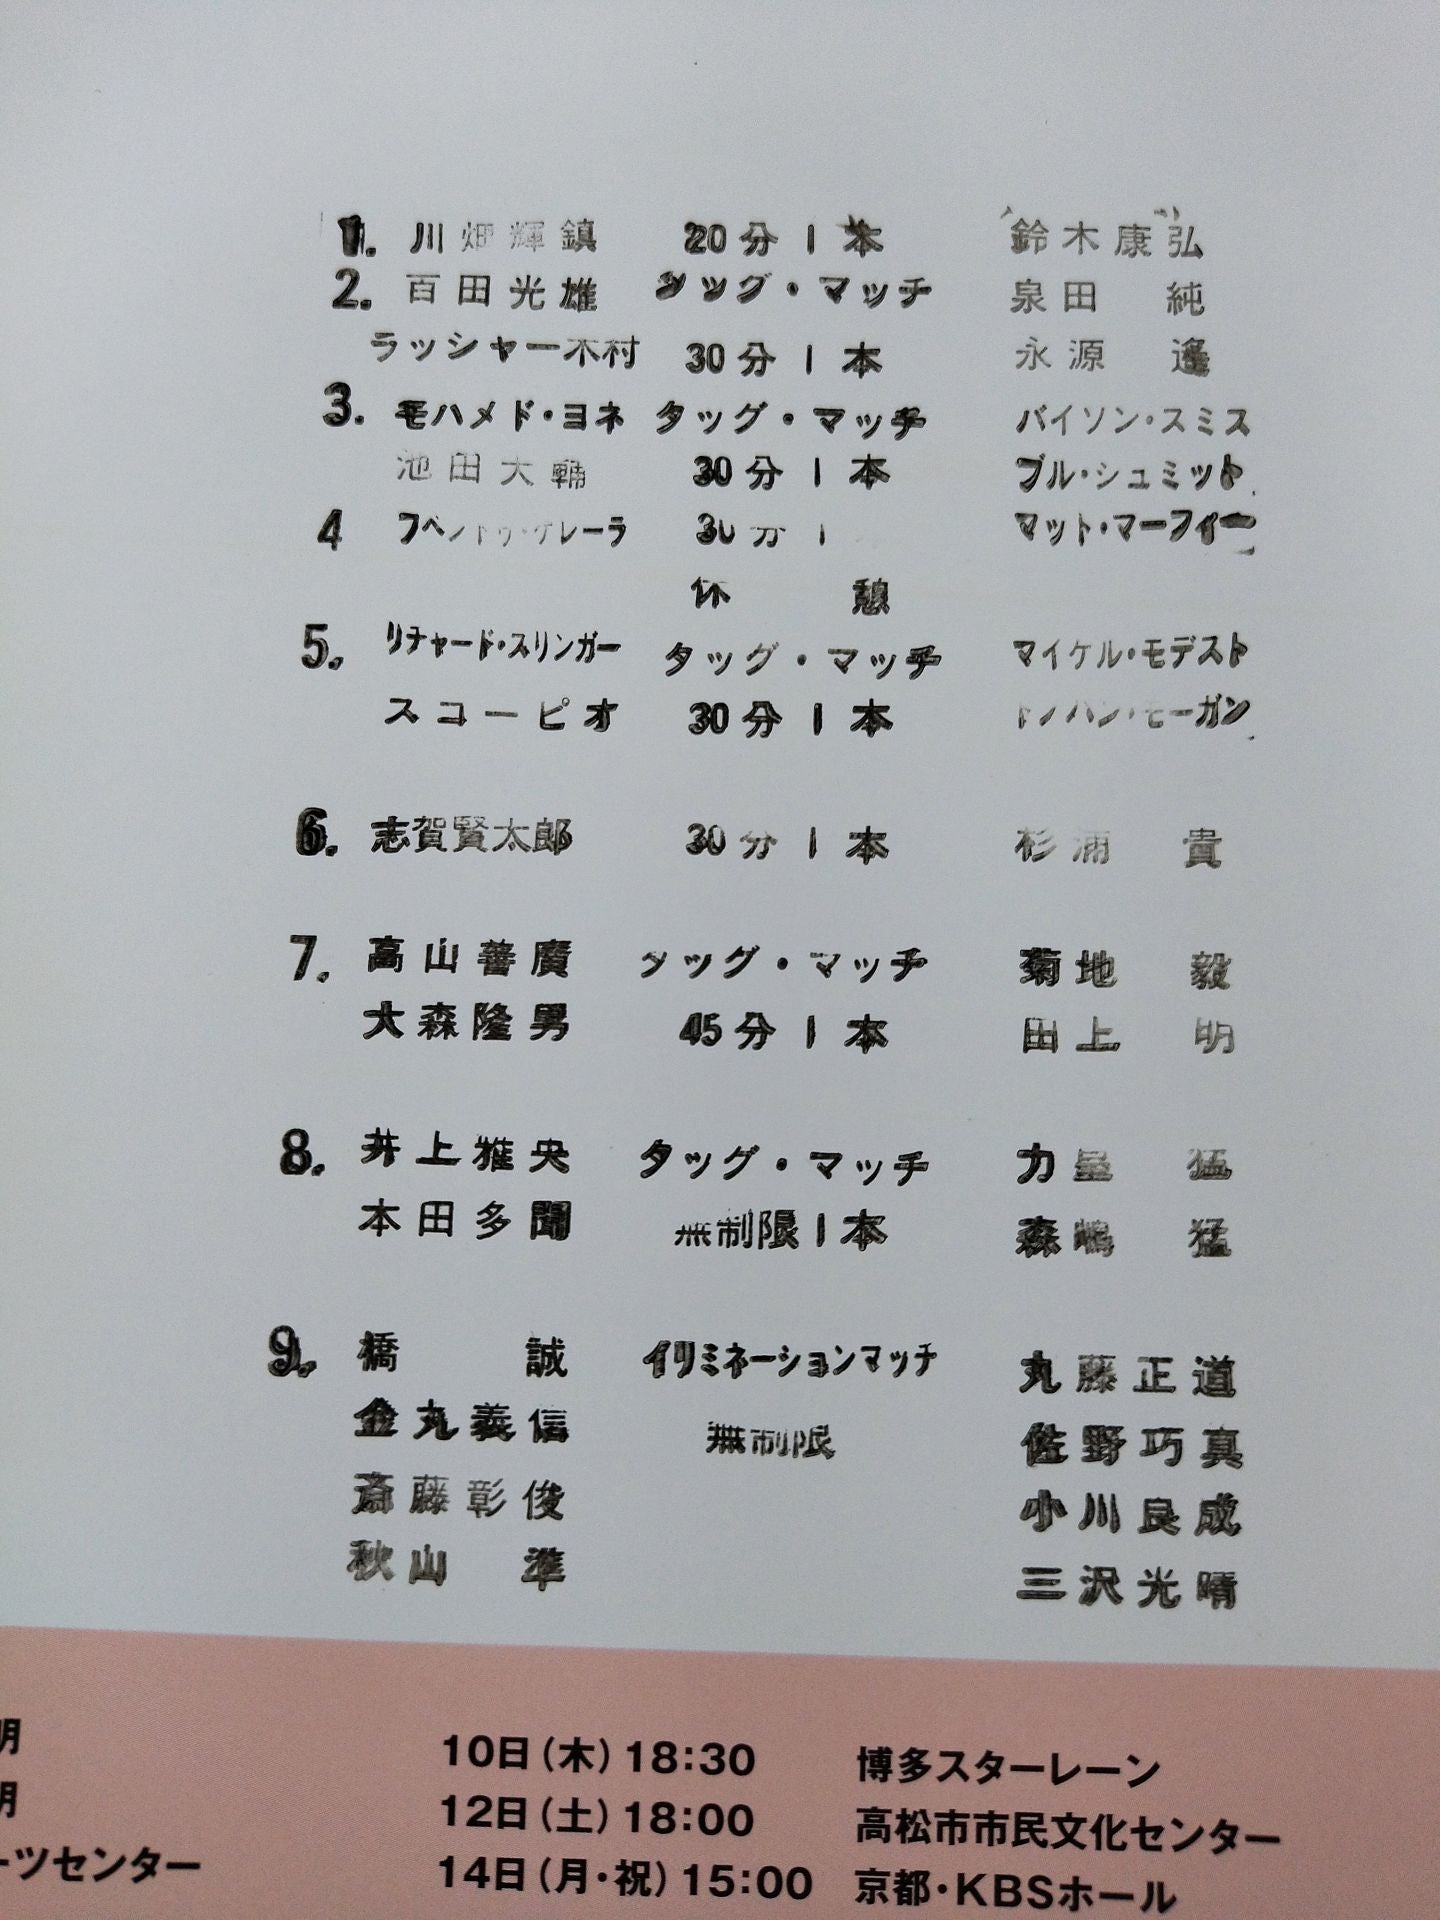 1. 川畑輝鎮 20分1本 鈴木康弘
2. 百田光雄 タッグ・マッチ 泉田 純
ラッシャー木村 30分1本 永源 遙
3. モハメド・ヨネ タッグ・マッチ バイソン・スミス
池田大輔 30分1本 ブル・シュミット
4 フベントゥ・ゲレーラ 30分1 マット・マーフィー
休 憩
5. リチャード・スリンガー タッグ・マッチ マイケル・モデスト
スコーピオ 30分1本 ドノバン・モーガン
6. 志賀賢太郎 30分1本 杉浦 貴
7. 高山善廣 タッグ・マッチ 菊地 毅
大森隆男 45分1本 田上 明
8. 井上雅央 タッグ・マッチ 力皇 猛
本田多聞 無制限1本 森嶋 猛
9. 橋 誠 イリミネーションマッチ 丸藤正道
金丸義信 無制限 佐野巧真
斎藤彰俊 小川良成
秋山 準 三沢光晴
明 10日(木)18:30 博多スターレーン
明 12日(土)18:00 高松市市民文化センター
ーツセンター 14日(月・祝)15:00 京都・KBSホール